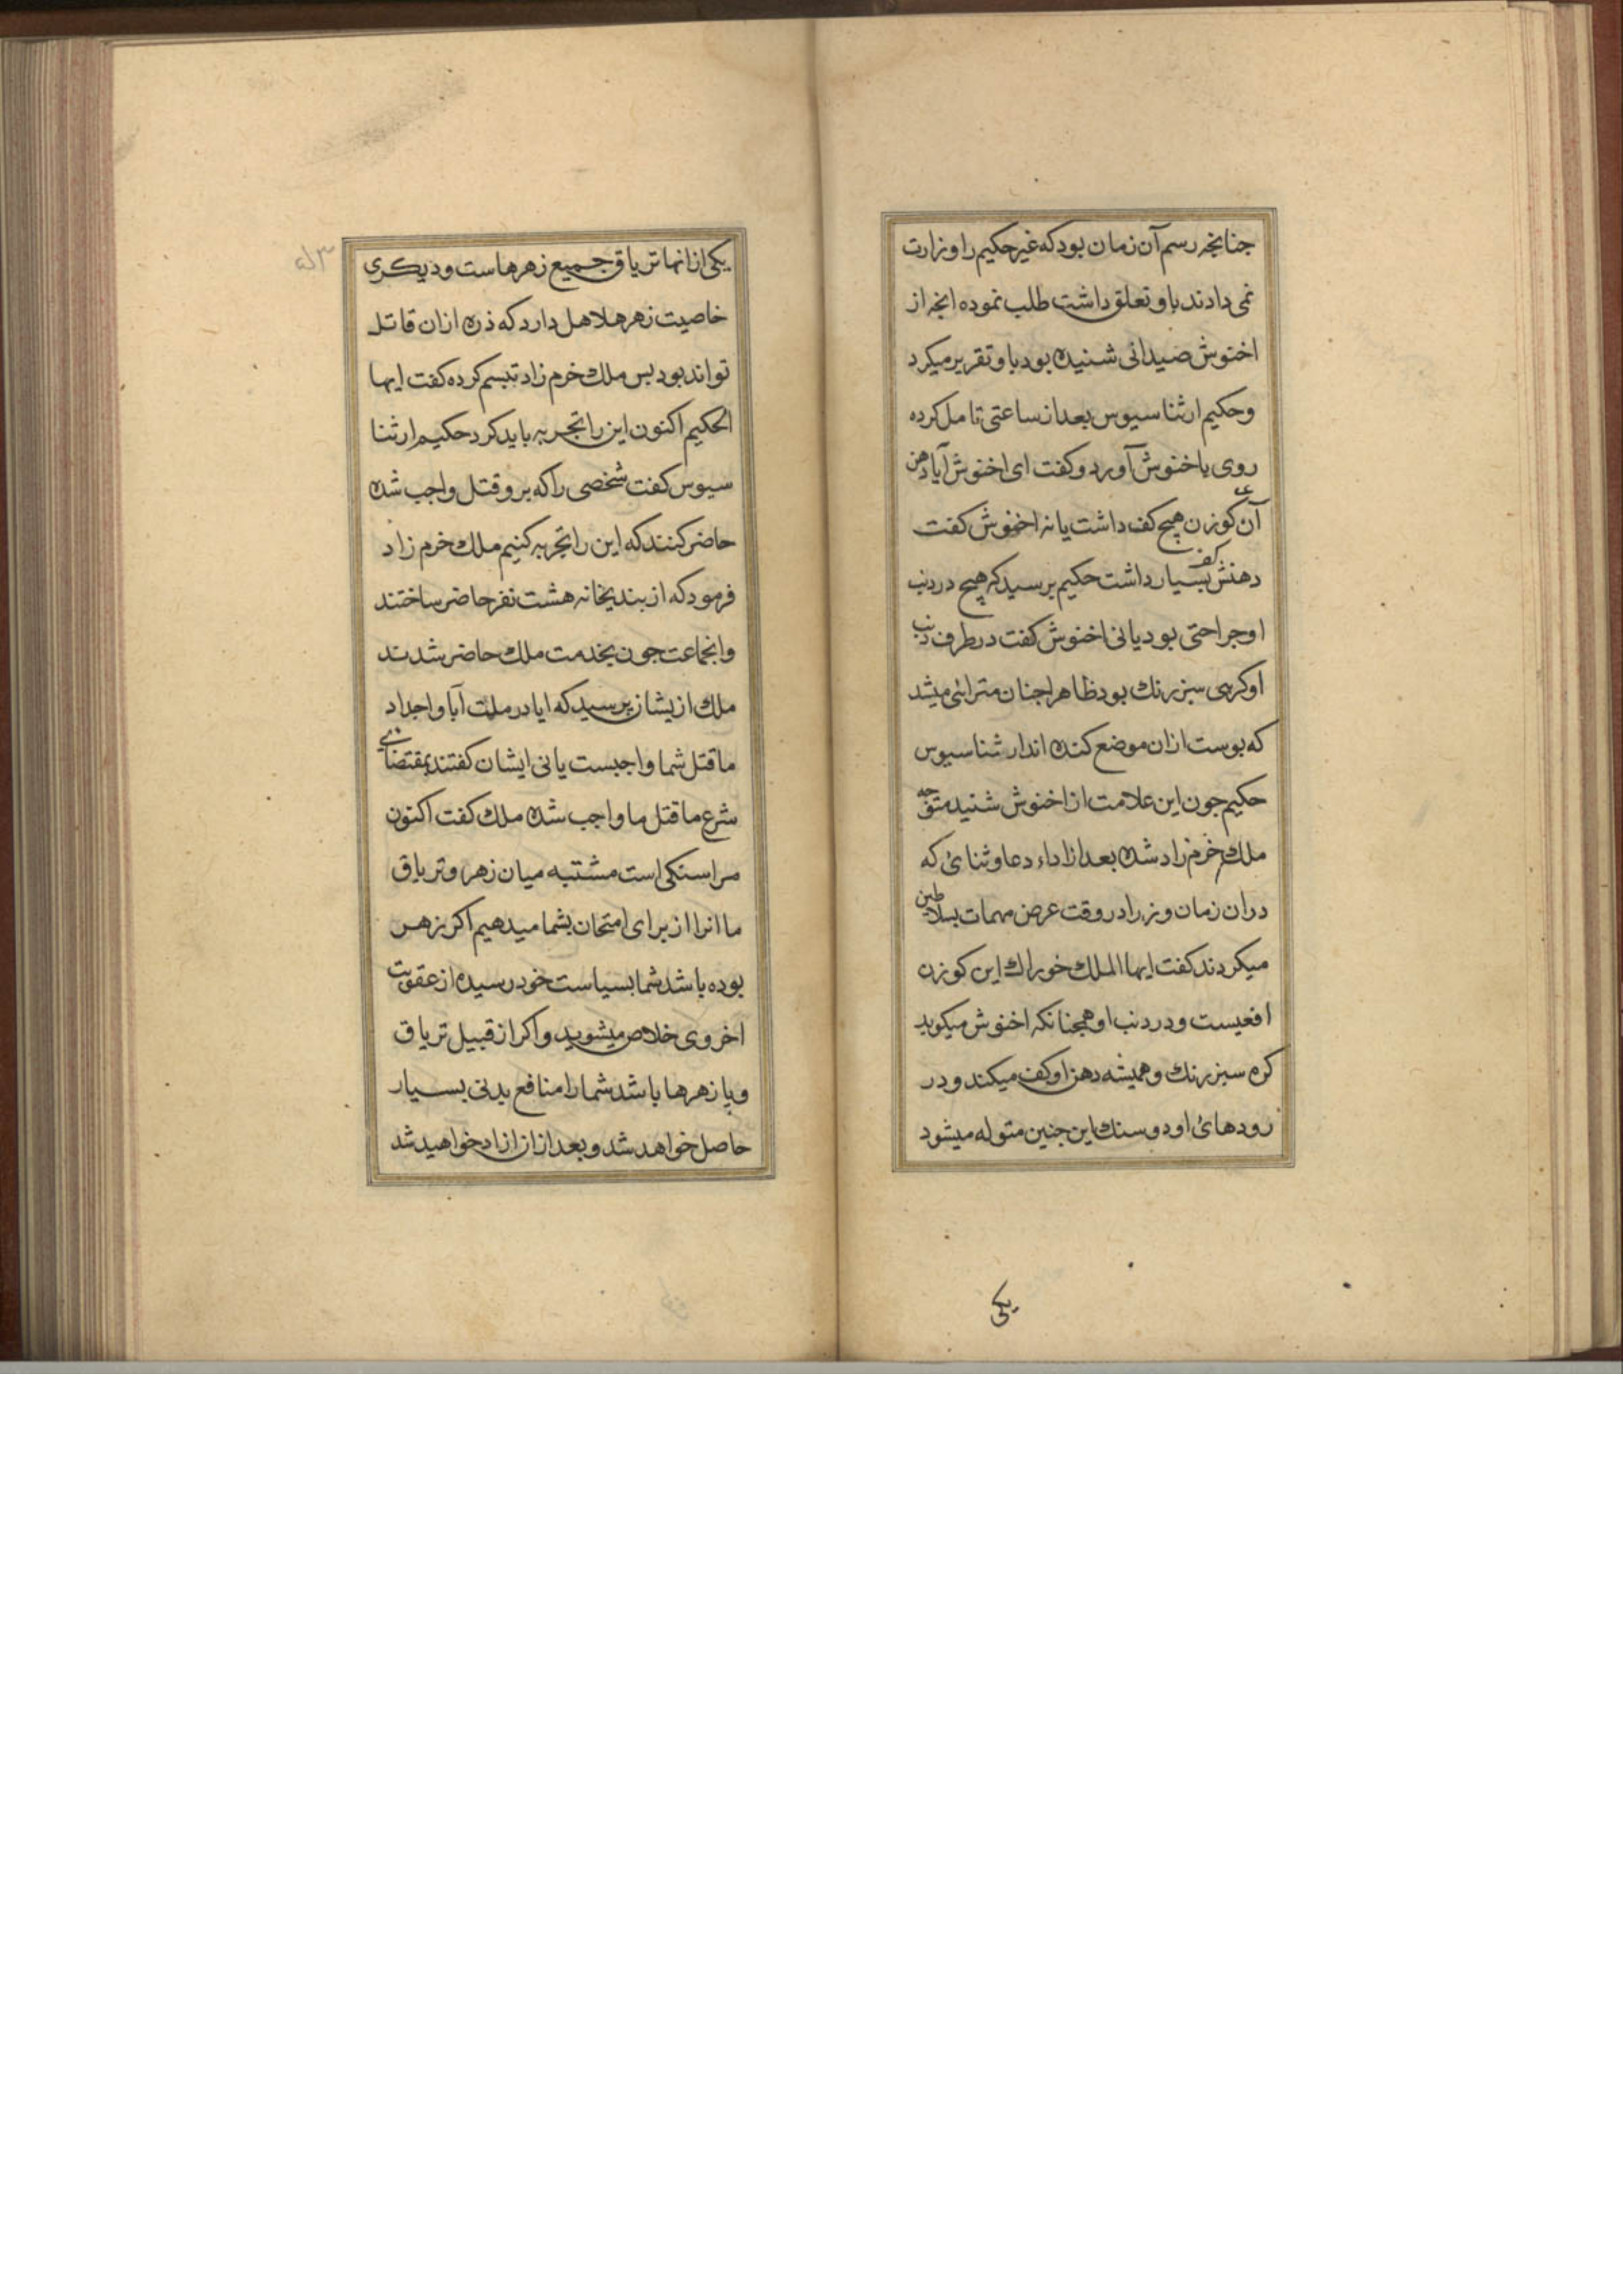 جنانجه رسم آن زمان بود که غیر حکیم را وزارت
نمی دادند باو تعلق داشت طلب نموده انجه از
اخنوش صیدانی شنیده بود باو تقریر میکرد
وحکیم ارثناسیوس بعد از ساعتی تامل کرده
روی باخنوش آورد و کفت ای اخنوش آیا دهن
آن کوزن هیچ کف داشت یا نه اخنوش کفت
دهنش کف بسیار داشت حکیم برسید که هیچ در دنب
او جراحتی بود یا نی اخنوش کفت در طرف دنب
او کرهی سبز رنك بود ظاهرا جنان مترائی میشد
که بوست ازان موضع کنده اند ارثناسیوس
حکیم جون این علامت از اخنوش شنید متوجه
ملك خرم زاد شده بعد از اداء دعا و ثنائ که
دران زمان وزرا در وقت عرض مهمات بسلاطین
میکردند کفت ایها الملك خوراك این کوزن
افعیست و در دنب او همجنانکه اخنوش میکوید
کره سبز رنك و همیشه دهن او کف میکند و در
رودهائ او دو سنك این جنین متوله میشود
یکی
یکی از انها تریاق جمیع زهرهاست و دیکری
خاصیت زهر هلاهل دارد که ذره ازان قاتل
تواند بود بس ملك خرم زاد تبسم کرده کفت ایها
الحکیم اکنون این را تجربه باید کرد حکیم ارثنا
سیوس کفت شخصی را که برو قتل واجب شده
حاضر کنند که این را تجربه کنیم ملك خرم زاد
فرمود که از بندیخانه هشت نفر حاضر ساختند
وانجماعت جون بخدمت ملك حاضر شدند
ملك ازیشان برسید که ایا در ملت آبا و اجداد
ما قتل شما واجبست یا نی ایشان کفتند بمقتضای
شرع ما قتل ما واجب شده ملك کفت اکنون
مرا سنکی است مشتبه میان زهر و تریاق
ما انرا از برای امتحان بشما میدهیم اکر زهر
بوده باشد شما بسیاست خود رسیده از عقوبت
اخروی خلاص میشوید و اکر از قبیل تریاق
و پا زهرها باشد شما را منافع بدنی بسیار
حاصل خواهد شد و بعد ازان ازاد خواهید شد